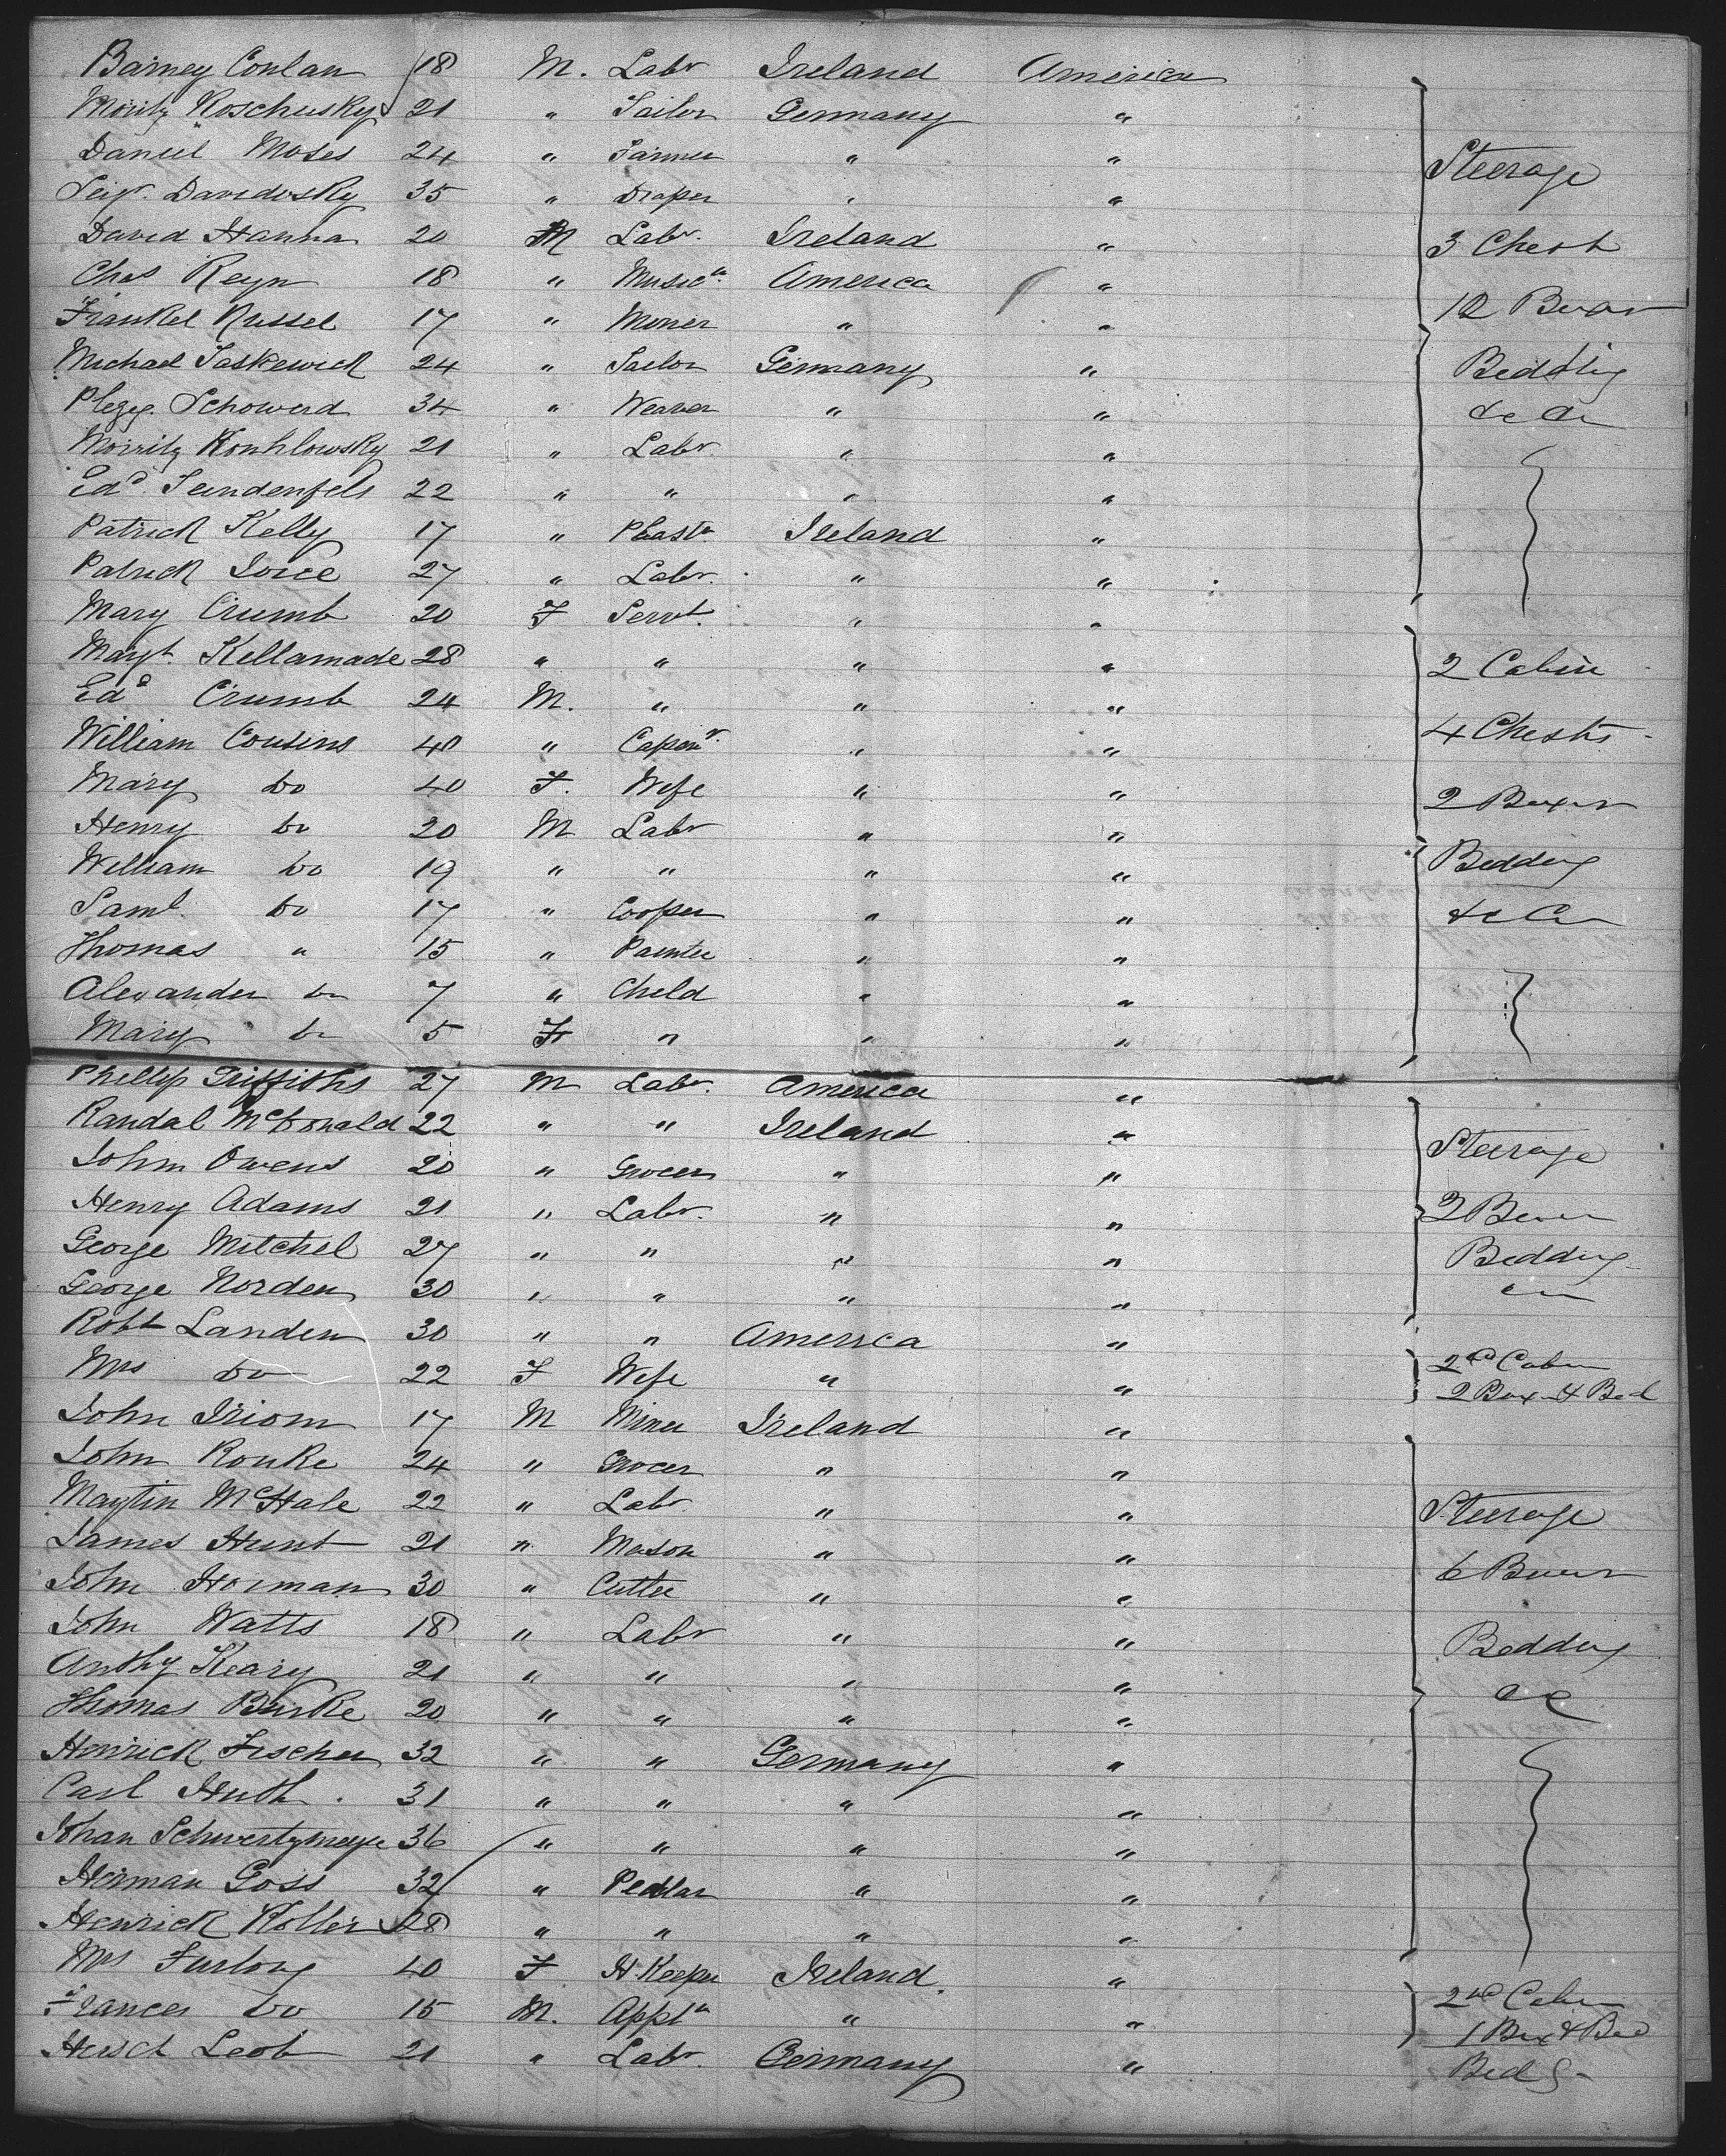 Barney Conlan 18 M. Labr Ireland America
Moritz Koschusky 21 " Tailor Germany "
Daniel Moses 24 " Farmer " " Steerage
Davidosky 35 " Draper " "
David Hanna 20 M Labr. Ireland " 3 Chest
Chas Reyn 18 " Music America "
Frankel Russel 17 " Moner " " 12 Boxes
Michael Taskewick 24 " Tailor Germany " Bedding
Schowerd 34 " Weaver " " &c &c
Morritz Konhlowsky 21 " Labr. " "
Edd. 22 " " " "
Patrick Kelly 17 " Plastr Ireland "
Patrick Joice 27 " Labr. " "
Mary Crumb 20 F Servt. " "
Margt. Kellamade 28 " " " " 2 Cabin
Edd Crumb 24 M. " " "
William Cousins 40 " Capenr. " " 4 Chests
Mary Do 40 F. Wife " " 2 Boxes
Henry Do 20 M Labr " "
William Do 19 " " " " Bedding
Saml. Do 17 " Cooper " " &c &c
Thomas " 15 " Painter " "
Alexander Do 7 " Child " "
Mary Do 5 F " " "
Phillip Griffiths 27 M Labr. America "
Randal McDonald 22 " " Ireland " Steerage
John Owens 20 " Grocer " "
Henry Adams 21 " Labr. " " 2 Boxes
George Mitchel 27 " " " " Bedding
George Norden 30 " " " "
Robt Landen 30 " " America " 2nd Cabin
Mrs Do 22 F Wife " " 2 Box & Bed
John Iriom 17 M Miner Ireland "
John Rouke 24 " Grocer " "
Maytin McHale 22 " Labr. " " Steerage
James Hunt 21 " Mason " "
John Horman 30 " Cutler " " 6 Boxes
John Watts 18 " Labr " " Bedding
Anthy Keary 21 " " " " &c
Thomas Burke 20 " " " "
Henrick Fischer 32 " " Germany "
Carl Huth. 31 " " " "
Johan Schwertzmeye 36 " " " "
Herman Goss 32 " Pedlar " "
Henrick Koller 28 " " " "
Mrs Furlong 40 F H Keeper Ireland. " 2nd Cabin
Frances Do 15 M. Appln " " 1 Box & Bed
Hersch Leob 21 " Labr. Germany " Bedg